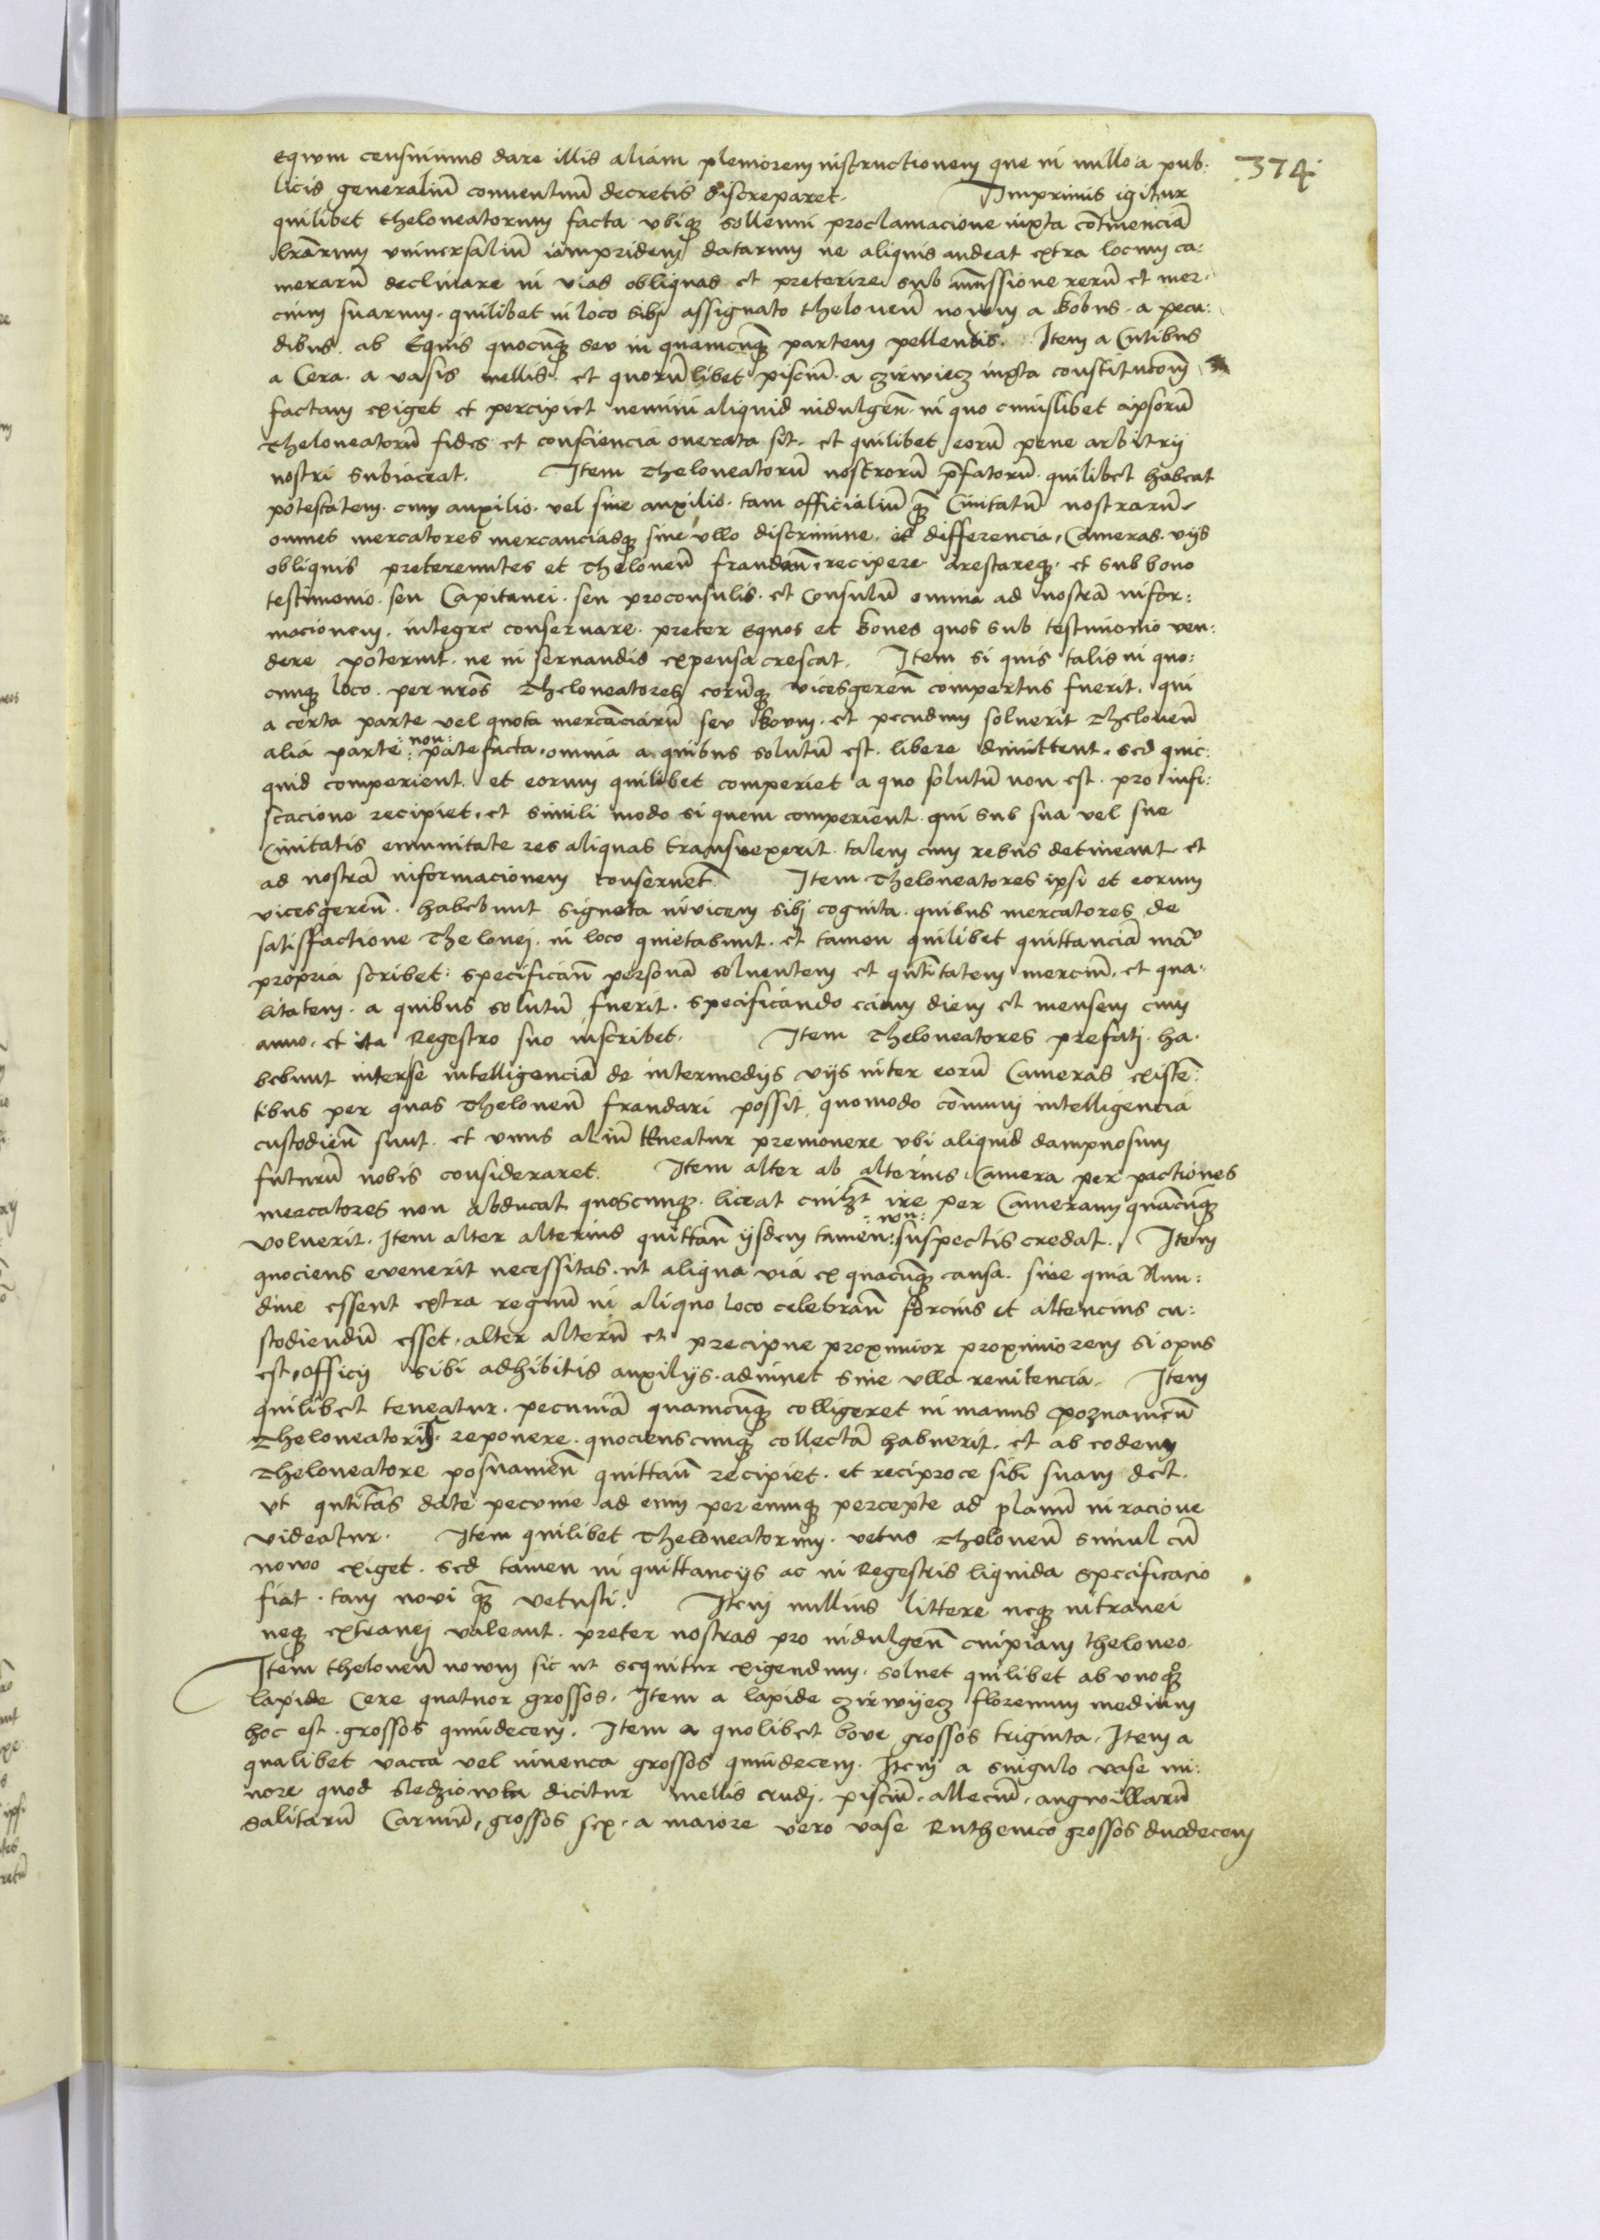 374
equm censuimus dare illis aliam pleniorem instructionem que in nullo a pub:
licis generaliũ conventuũ decretis discreparet. Imprimis igitur
quilibet theloneatorum facta vbiqꝫ sollenni proclamacione iuxta cõtinenciã
lrãrum vniuersaliũ iampridem datarum ne aliquis audeat extra locum ca:
merarũ declinare in vias obliquas et preterire sub amissione rerũ et mer:
cium suarum. quilibet in loco sibj assignato theloneũ nouum a bobus. a pecu:
dibus. ab Equis quocũqꝫ seu in quamcũqꝫ partem pellendis. Item a Cutibus
a Cera. a vasis mellis. et quorũlibet pisciũ. a czirwiecz iuxta constitucõm
factam exiget et percipiet nemini aliquid indulgeñ. in quo cuiuslibet aipsorũ
Theloneatorũ fides et consciencia onerata sit. et quilibet eorũ pene arbitrij
nostri subiaceat. Item Theloneatorũ nostrorũ p̃fatorũ. quilibet habeat
potestatem. cum auxilio. vel sine auxilio. tam officialiũ qꝫ̃ Ciuitatũ nostrarũ.
omnes mercatores mercanciasqꝫ sine vllo discrimine. et differencia, Cameras. vijs
obliquis pretereuntes et Theloneũ fraudañ. recipere arestareqꝫ. et sub bono
testimonio. seu Capitanei. seu proconsulis. et Consulũ omnia ad nostrã infor:
macionem. integre conseruare. preter Equos et boues quos sub testimonio ven:
dere poterint. ne in seruandis expensa crescat. Item si quis talis in quo:
cunqꝫ loco. per nrõs Theloneatores eorũqꝫ vicesgereñ compertus fuerit. qui
a certa parte vel quota mercãciarũ seu boum. et pecudum soluerit Theloneũ
alia parte :non: patefacta. omnia a quibus solutũ est. libere dimittent. sed quic:
quid comperient. et eorum quilibet comperiet a quo solutũ non est. pro infi:
scacione recipiet. et simili modo si quem comperient. qui sub sua vel sue
Ciuitatis emunitate res aliquas transuexerit. talem cum rebus detineant et
ad nostrã informacionem conseruet. Item Theloneatores ipsi et eorum
vicesgereñ. habebunt signeta inuicem sibj cognita. quibus mercatores de
satisffactione Thelonej. in loco quietabunt. et tamen quilibet quittanciã mãu
propria scribet: specificañ personã soluentem et q̃ntitatem merciũ. et qua:
litatem. a quibus solutũ fuerit. specificando eciam diem et mensem cum
anno. et ita Regestro suo inscribet. Item Theloneatores prefatj. ha:
bebunt interse intelligenciã de intermedijs vijs inter eorũ Cameras existeñ:
tibus per quas Theloneũ fraudari possit, quomodo cõmuni intelligencia
custodieñ sunt. et vnus aliũ teneatur premonere vbi aliquid dampnosum
futurũ nobis consideraret. Item alter ab alterius Camera per pactiones
mercatores non abducat quoscunqꝫ. liceat cuilꝫt ire per Cameram quãcũqꝫ
voluerit. Item alter alterius quittañ ijsdem tamen :non: suspectis credat. Item
quociens evenerit necessitas. ut aliqua via ex quacũqꝫ causa. siue quia Nun:
dine essent extra regnũ in aliquo loco celebrañ forcius et attencius cu:
stodiendũ esset. alter alterũ et precipue proximior proximiorem si opus
est. officij sibi adhibitis auxilijs. adiuuet sine ulla renitencia. Item
quilibet teneatur. pecuniã quamcũqꝫ colligeret in manus poznanieñ
Theloneatoris. reponere. quocienscunqꝫ collectã habuerit. et ab eodem
Theloneatore posnanieñ quittañ recipiet. et reciproce sibi suam det.
vt qntitas date pecunie ad eum per eumqꝫ percepte ad planũ in racione
videatur. Item quilibet Theloneatorum. vetus Theloneũ simul cũ
nowo exiget. sed tamen in quittancijs ac in Regestris liquida specificacio
fiat. tam novi qꝫ̃ vetusti. Item nullius littere neqꝫ intranei
neqꝫ extranej valeant. preter nostras pro indulgeñ cuipiam theloneo.
Item theloneũ nowum sic ut sequitur exigendum. soluet quilibet ab vnoqꝫ
lapide Cere quatuor grossos. Item a lapide czirwijecz florenum medium
hoc est. grossos quindecem. Item a quolibet bove grossos triginta. Item a
qualibet vacca vel iuuenca grossos quindecem. Item a singulo vase mi:
nore quod sledziowka dicitur mellis crudj. pisciũ. alleciũ. angwillarũ
salitarũ Carniũ, grossos sex. a maiore vero vase Ruthenico grossos duodecem